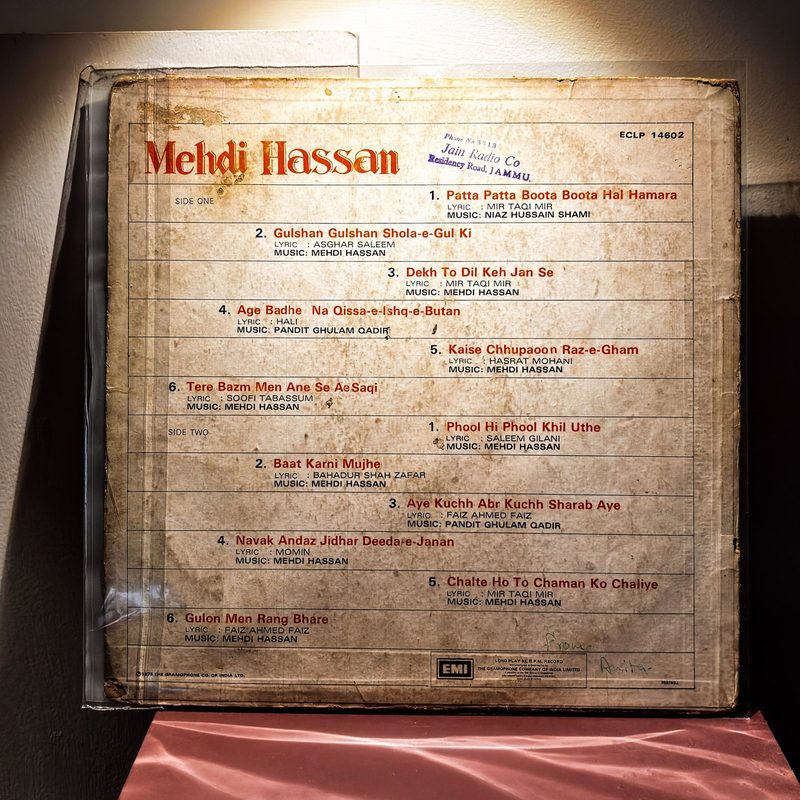 ECLP 14602
Mehdi Hassan
Phone No 3313
Jain Radio Co
Residency Road, JAMMU.
SIDE ONE
1. Patta Patta Boota Boota Hal Hamara
LYRIC : MIR TAQI MIR
MUSIC: NIAZ HUSSAIN SHAMI
2. Gulshan Gulshan Shola-e-Gul Ki
LYRIC : ASGHAR SALEEM
MUSIC: MEHDI HASSAN
3. Dekh To Dil Keh Jan Se
LYRIC : MIR TAQI MIR
MUSIC: MEHDI HASSAN
4. Age Badhe Na Qissa-e-Ishq-e-Butan
LYRIC : HALI
MUSIC: PANDIT GHULAM QADIR
5. Kaise Chhupaoon Raz-e-Gham
LYRIC : HASRAT MOHANI
MUSIC: MEHDI HASSAN
6. Tere Bazm Men Ane Se Ae Saqi
LYRIC : SOOFI TABASSUM
MUSIC: MEHDI HASSAN
SIDE TWO
1. Phool Hi Phool Khil Uthe
LYRIC : SALEEM GILANI
MUSIC: MEHDI HASSAN
2. Baat Karni Mujhe
LYRIC : BAHADUR SHAH ZAFAR
MUSIC: MEHDI HASSAN
3. Aye Kuchh Abr Kuchh Sharab Aye
LYRIC : FAIZ AHMED FAIZ
MUSIC: PANDIT GHULAM QADIR
4. Navak Andaz Jidhar Deeda-e-Janan
LYRIC : MOMIN
MUSIC: MEHDI HASSAN
5. Chalte Ho To Chaman Ko Chaliye
LYRIC : MIR TAQI MIR
MUSIC: MEHDI HASSAN
6. Gulon Men Rang Bhare
LYRIC : FAIZ AHMED FAIZ
MUSIC: MEHDI HASSAN
EMI
LONG PLAY 33⅓ R.P.M. RECORD
THE GRAMOPHONE COMPANY OF INDIA LIMITED
THE GRAMOPHONE CO. OF INDIA LTD.